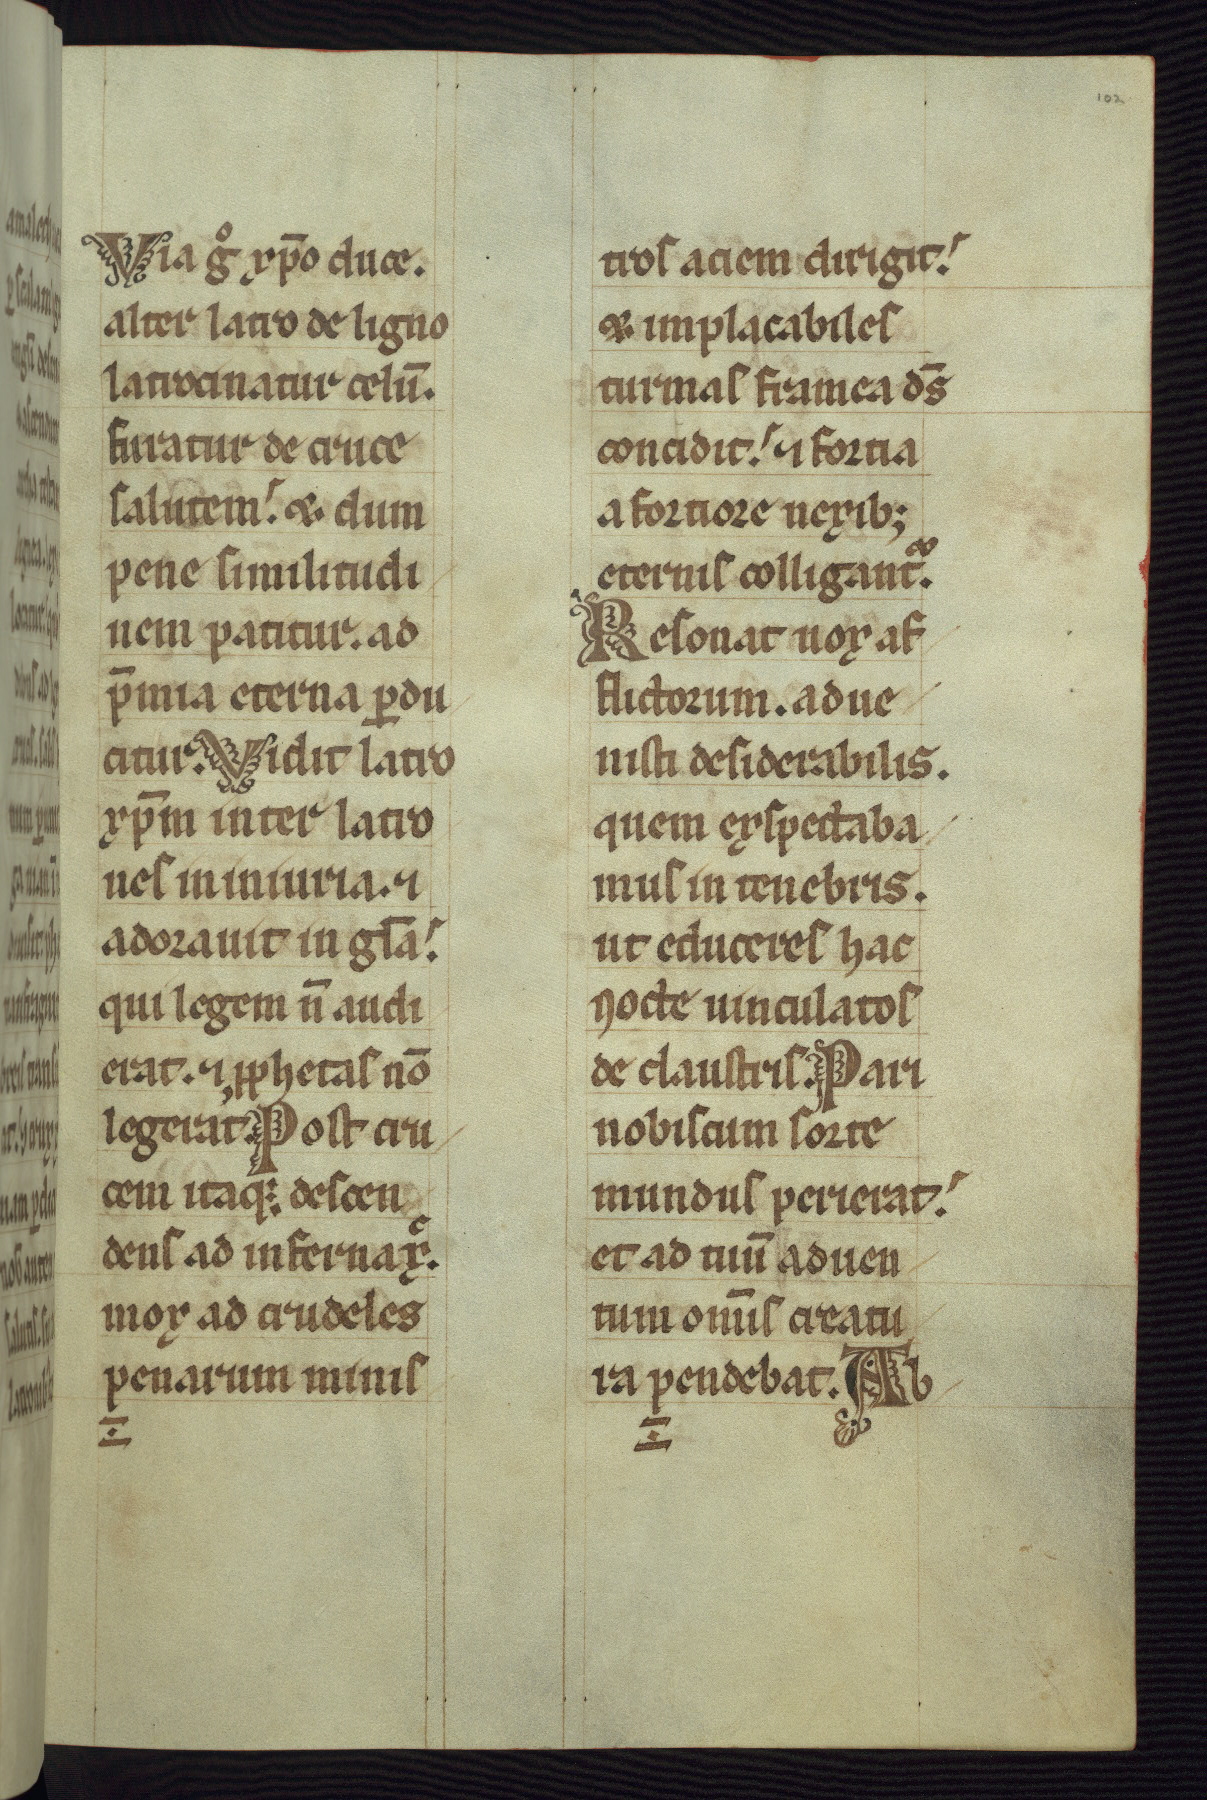 102
Via gͦ xp̄o duce.
alter latro de ligno
latrocinatur celū.
furatur de cruce
salutem: & dum
pene similitudi
nem patitur. ad
p̄mia eterna ꝑdu
citur. Vidit latro
xp̄m inter latro
nes in iniuria. ⁊
adorauit in gl̄a:
qui legem n̄ audi
erat. ⁊ ꝓphetas nō
legerat. Post cru
cem itaqꝫ descen
dens ad inferna xͨ.
mox ad crudeles
penarum minis
tros aciem dirigit:
& implacabiles
turmas framea d̄s
concidit: ⁊ fortia
a fortiore nexib;
eternis colligant᷑.
Resonat uox af
flictorum. adue
nisti desiderabilis.
quem exspectaba
mus in tenebris.
ut educeres hac
nocte uinculatos
de claustris. Pari
nobiscum sorte
mundus perierat:
et ad tuū aduen
tum om̄is creatu
ra pendebat. Ab